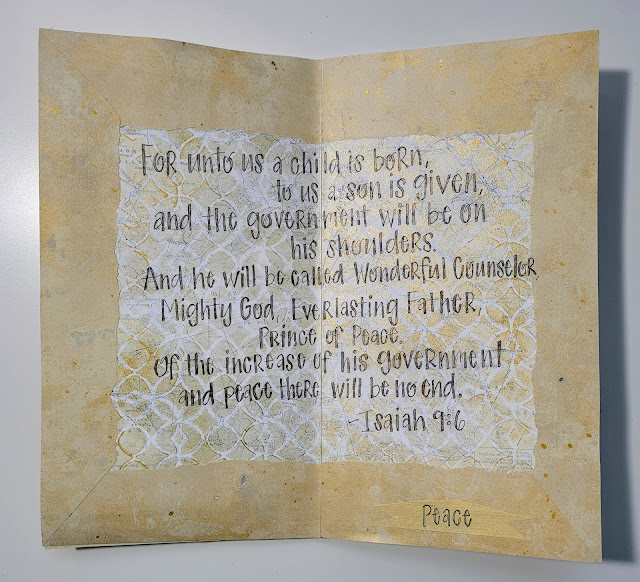 For unto us a child is born,
to us a son is given,
and the government will be on
his shoulders.
And he will be called Wonderful Counselor
Mighty God, Everlasting Father,
Prince of Peace.
Of the increase of his government
and peace there will be no end.
-Isaiah 9:6
Peace